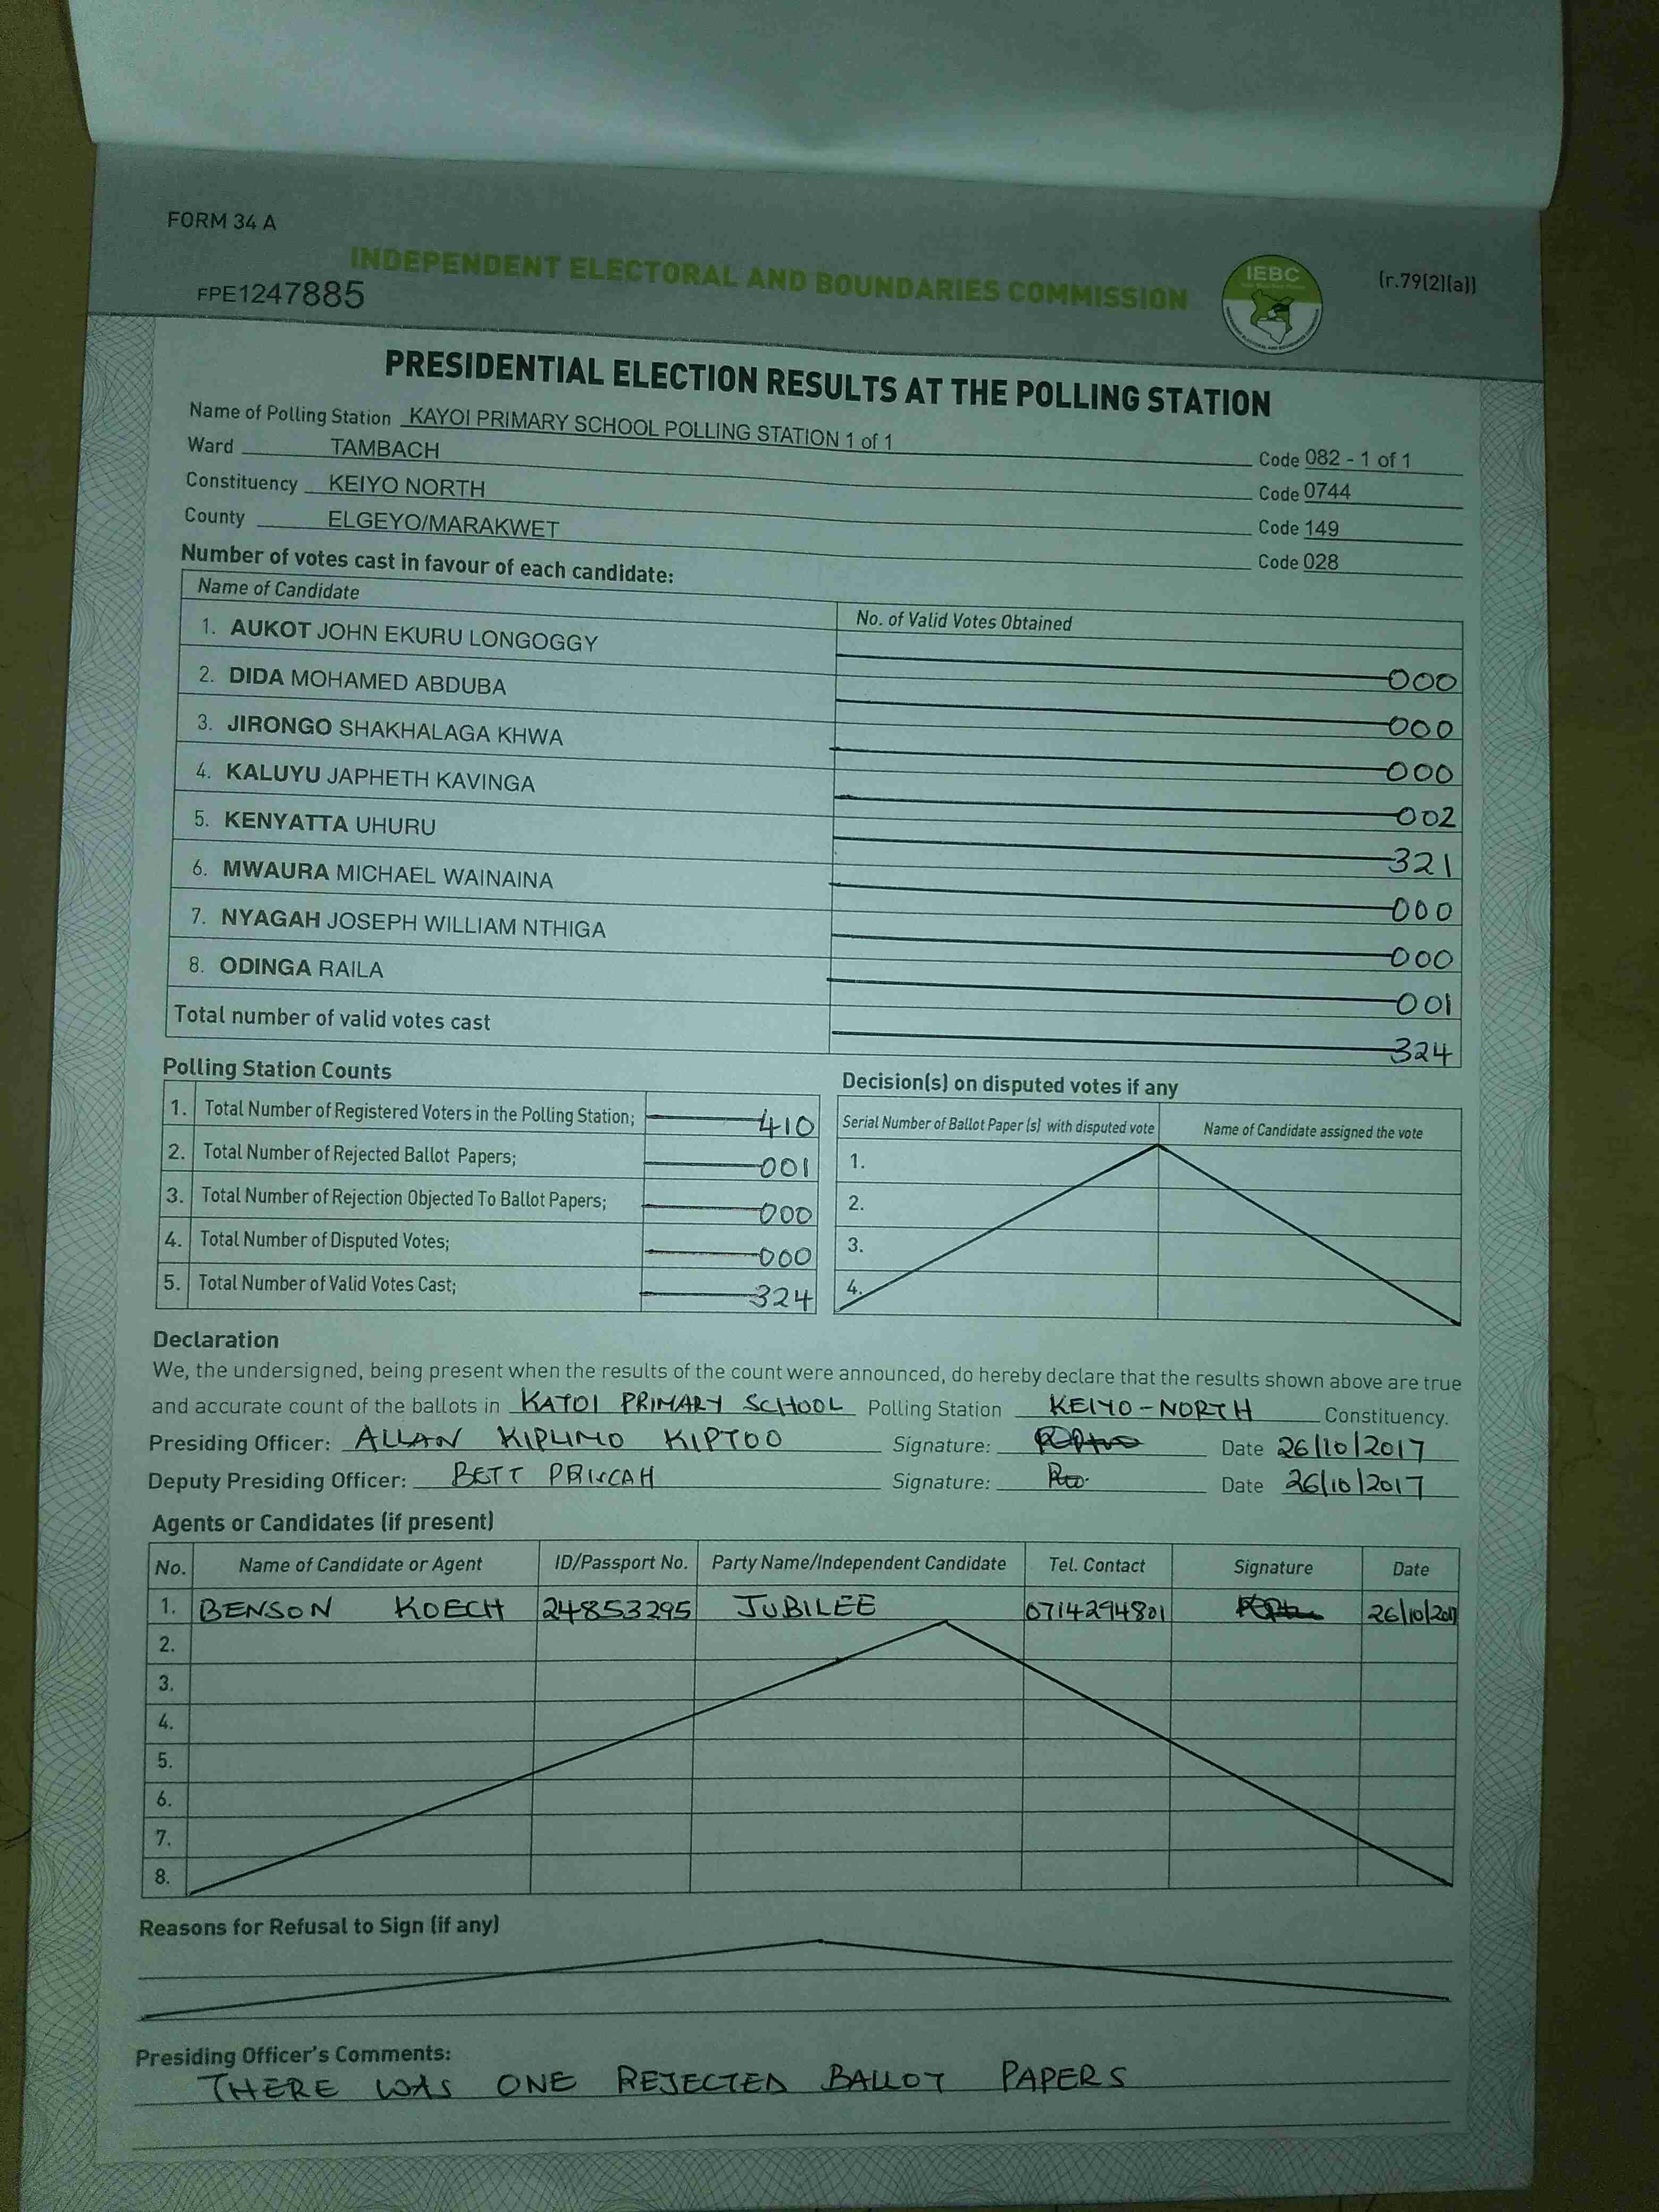 FORM 34 A
INDEPENDENT ELECTORAL AND BOUNDARIES COMMISSION
IEBC
(r.79(2)(a))
FPE1247885
PRESIDENTIAL ELECTION RESULTS AT THE POLLING STATION
Name of Polling Station KAYOI PRIMARY SCHOOL POLLING STATION 1 of 1 Code 082 - 1 of 1
Ward TAMBACH Code 0744
Constituency KEIYO NORTH Code 149
County ELGEYO/MARAKWET Code 028
Number of votes cast in favour of each candidate:
Name of Candidate No. of Valid Votes Obtained
1. AUKOT JOHN EKURU LONGOGGY 000
2. DIDA MOHAMED ABDUBA 000
3. JIRONGO SHAKHALAGA KHWA 000
4. KALUYU JAPHETH KAVINGA 002
5. KENYATTA UHURU 321
6. MWAURA MICHAEL WAINAINA 000
7. NYAGAH JOSEPH WILLIAM NTHIGA 000
8. ODINGA RAILA 001
Total number of valid votes cast 324
Polling Station Counts
1. Total Number of Registered Voters in the Polling Station; 410
2. Total Number of Rejected Ballot Papers; 001
3. Total Number of Rejection Objected To Ballot Papers; 000
4. Total Number of Disputed Votes; 000
5. Total Number of Valid Votes Cast; 324
Decision(s) on disputed votes if any
Serial Number of Ballot Paper (s) with disputed vote Name of Candidate assigned the vote
1.
2.
3.
4.
Declaration
We, the undersigned, being present when the results of the count were announced, do hereby declare that the results shown above are true
and accurate count of the ballots in KAYOI PRIMARY SCHOOL Polling Station KEIYO-NORTH Constituency.
Presiding Officer: ALLAN KIPLIMO KIPTOO Signature: Date 26/10/2017
Deputy Presiding Officer: BETT PRISCAH Signature: Date 26/10/2017
Agents or Candidates (if present)
No. Name of Candidate or Agent ID/Passport No. Party Name/Independent Candidate Tel. Contact Signature Date
1. BENSON KOECH 24853295 JUBILEE 0714294801 26/10/2017
2.
3.
4.
5.
6.
7.
8.
Reasons for Refusal to Sign (if any)
Presiding Officer's Comments:
THERE WAS ONE REJECTED BALLOT PAPERS